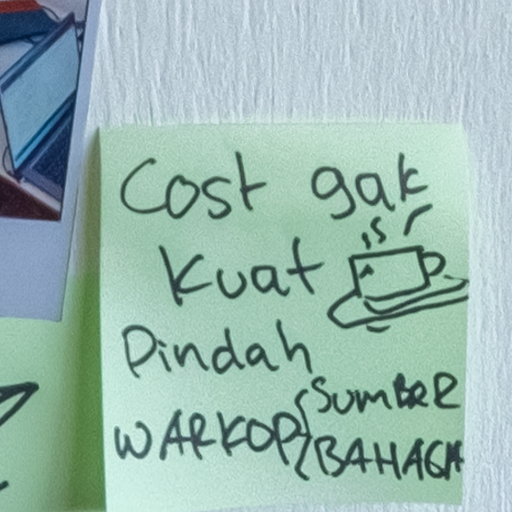 Cost gak
Kuat
Pindah
WARKOP
SUMBER
BAHAGIA